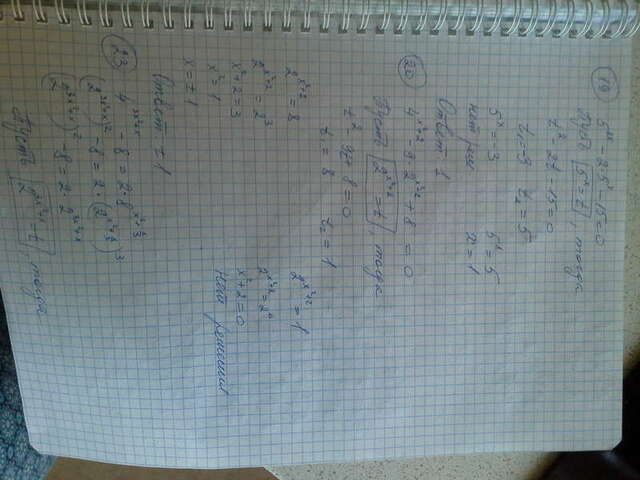 19 5^{2x} - 2·5^x - 15 = 0
Пусть 5^x = t, тогда
t^2 - 2t - 15 = 0
t_1 = -3 t_2 = 5
5^x = -3 5^x = 5
нет реш x = 1
Ответ: 1
20 4^{x^2+2} - 9·2^{x^2+2} + 8 = 0
Пусть 2^{x^2+2} = t, тогда
t^2 - 9t + 8 = 0
t_1 = 8 t_2 = 1
2^{x^2+2} = 8 2^{x^2+2} = 1
2^{x^2+2} = 2^3 2^{x^2+2} = 2^0
x^2 + 2 = 3 x^2 + 2 = 0
x^2 = 1 нет решения
x = ±1
Ответ: ±1
23 4^{3x^2+x} - 8 = 2·8^{x^2+\frac{x}{3}}
(2^{3x^2+x})^2 - 8 = 2·(2^{x^2+\frac{x}{3}})^3
(2^{3x^2+x})^2 - 8 = 2·2^{3x^2+x}
Пусть 2^{3x^2+x} = t, тогда